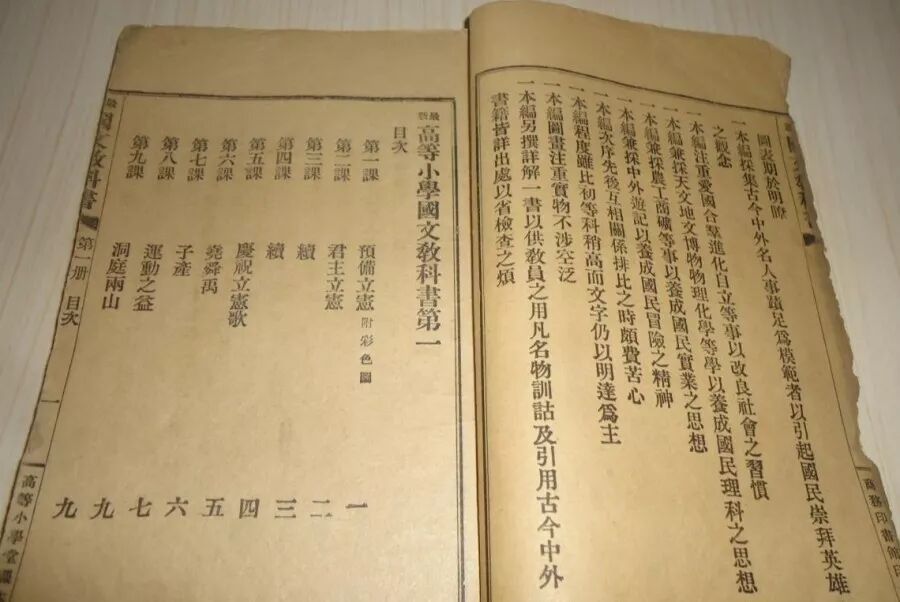 商務印書館印
圖表期於明瞭
一本編採集古今中外名人事蹟足爲模範者以引起國民崇拜英雄
之觀念
一本編注重愛國合羣進化自立等事以改良社會之習慣
一本編兼採天文地文博物物理化學等學以養成國民理科之思想
一本編兼採農工商礦等事以養成國民實業之思想
一本編兼採中外遊記以養成國民冒險之精神
一本編次序先後互相關係排比之時頗費苦心
一本編程度雖比初等科稍高而文字仍以明達爲主
一本編圖畫注重實物不涉空泛
一本編另撰詳解一書以供教員之用凡名物訓詁及引用古今中外
書籍皆詳出處以省檢查之煩
最新高等小學國文教科書第一
目次
第一課 預備立憲 附彩色圖 一
第二課 君主立憲 二
第三課 續 三
第四課 續 四
第五課 慶祝立憲歌 五
第六課 堯舜禹 六
第七課 子產 七
第八課 運動之益 九
第九課 洞庭兩山 九
國文教科書 第一册 目次 一 高等小學堂課